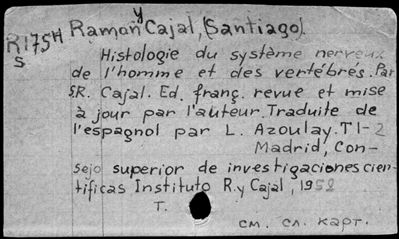 R175H
S
Ramon y Cajal, (Santiago).
Histologie du système nerveux
de l'homme et des vertébrés. Par
SR. Cajal. Ed. franç. revue et mise
à jour par l'auteur. Traduite de
l'espagnol par L. Azoulay. T1-2
Madrid, Con-
sejo superior de investigaciones cien-
tíficas Instituto R. y Cajal, 1952
T.
см. сл. карт.